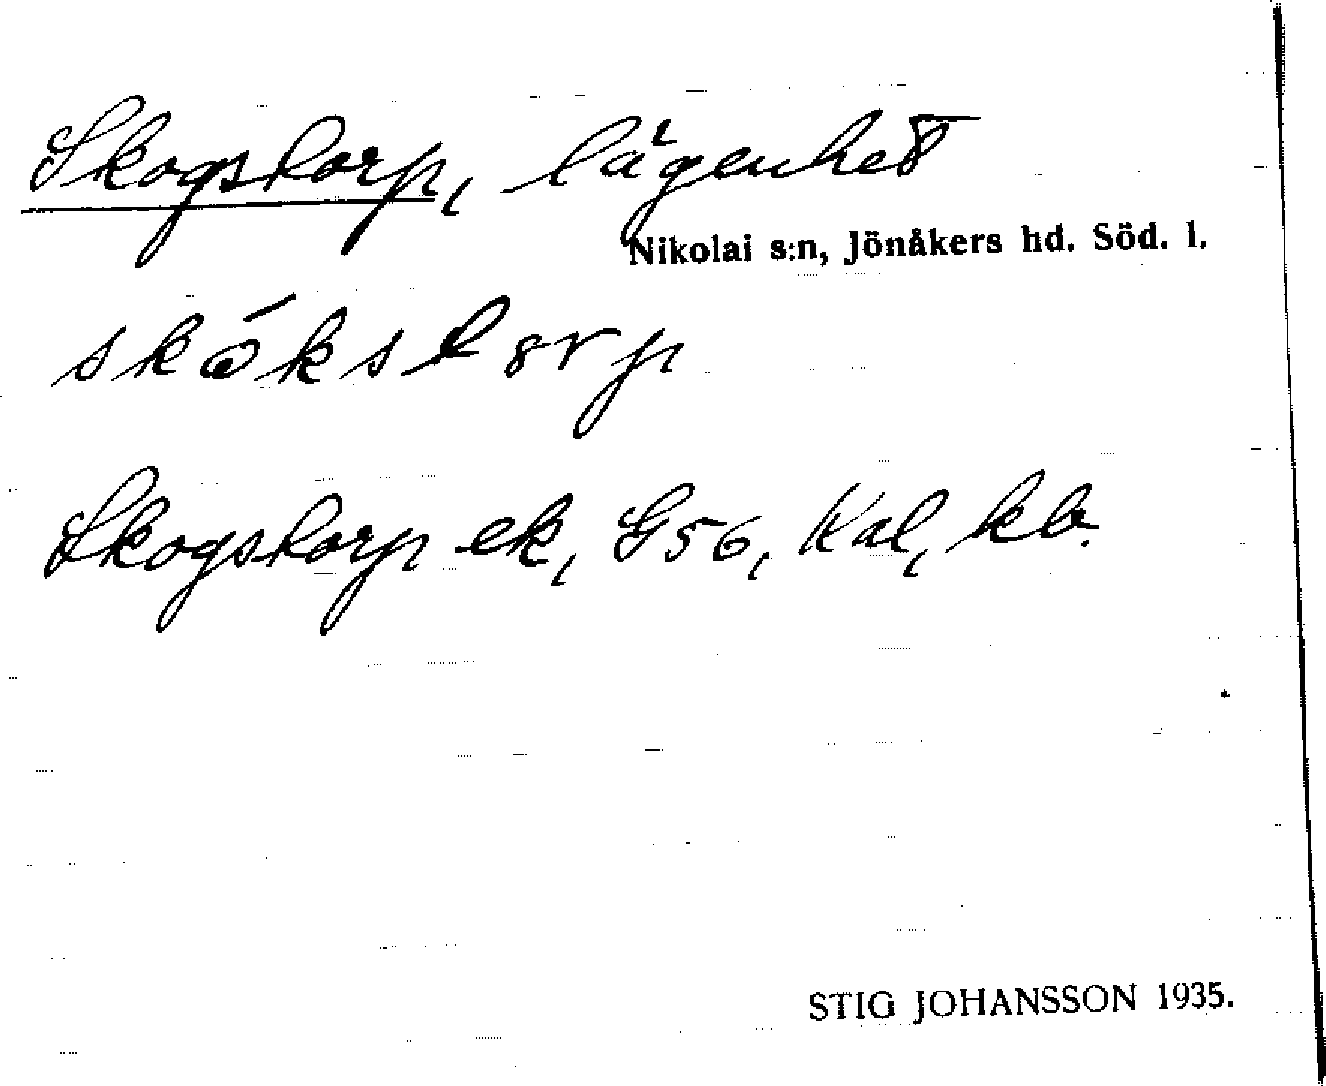 Skogstorp, lägenhet
Nikolai s:n, Jönåkers hd. Söd. l.
skókstorp
Skogstorp ek, G56, Kal, kb.
STIG JOHANSSON 1935.